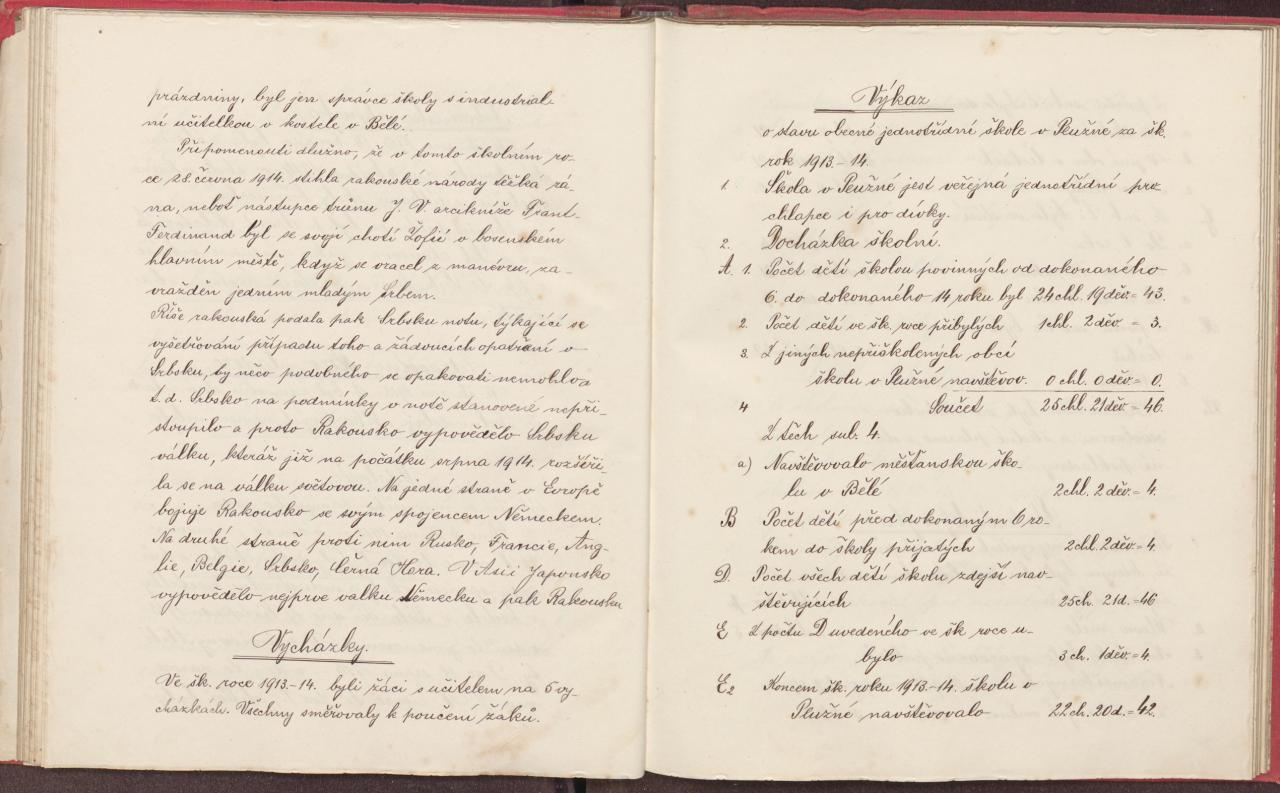 prázdniny, byl jen správce školy s industrial-
ní učitelkou v kostele v Bělé.
Připomenouti dlužno, že v tomto školním ro-
ce 28. června 1914. stihla rakouské národy těžká rá-
na, neboť nástupce trůnu J. V. arcikníže Frant.
Ferdinand byl se svojí chotí Žofií v bosenském
hlavním městě, když se vracel z manévru, za-
vražděn jedním mladým Srbem.
Říše rakouská podala pak Srbsku notu, týkající se
vyšetřování případu toho a žádoucích opatření v
Srbsku, by něco podobného se opakovati nemohlo a
t. d. Srbsko na podmínky v notě stanovené nepři-
stoupilo a proto Rakousko vypovědělo Srbsku
válku, kteráž již na počátku srpna 1914. rozšíři-
la se na válku světovou. Na jedné straně v Evropě
bojuje Rakousko se svým spojencem Německem.
Na druhé straně proti nim Rusko, Francie, Ang-
lie, Belgie, Srbsko, Černá Hora. V Asii Japonsko
vypovědělo nejprve valku Německu a pak Rakousku
Vycházky.
Ve šk. roce 1913.-14. byli žáci s učitelem na 5 vy-
cházkách. Všechny směřovaly k poučení žáků.
Výkaz
o stavu obecné jednotřídní škole v Plužné za šk.
rok 1913.-14.
1. Škola v Plužné jest veřejná jednotřídní pro
chlapce i pro dívky.
2. Docházka školní.
A. 1. Počet dětí školou povinných od dokonaného
6. do dokonaného 14 roku byl 24 chl. 19 děv. = 43.
2. Počet dětí ve šk. roce přibylých 1 chl. 2 děv. = 3.
3. Z jiných nepřiškolených obcí
školu v Plužné navštěvov. 0 chl. 0 děv. = 0.
4 Součet 25 chl. 21 děv. = 46.
Z těch sub. 4.
a) Navštěvovalo měšťanskou ško-
lu v Bělé 2 chl. 2 děv. = 4.
B Počet dětí před dokonaným 6 ro-
kem do školy přijatých 2 chl. 2 děv. = 4.
D. Počet všech dětí školu zdejší nav-
štěvujících 25 ch. 21 d. = 46
E Z počtu D uvedeného ve šk roce u-
bylo 3 ch. 1 děv. = 4.
E2 Koncem šk. roku 1913.-14. školu v
Plužné navštěvovalo 22 ch. 20 d. = 42.